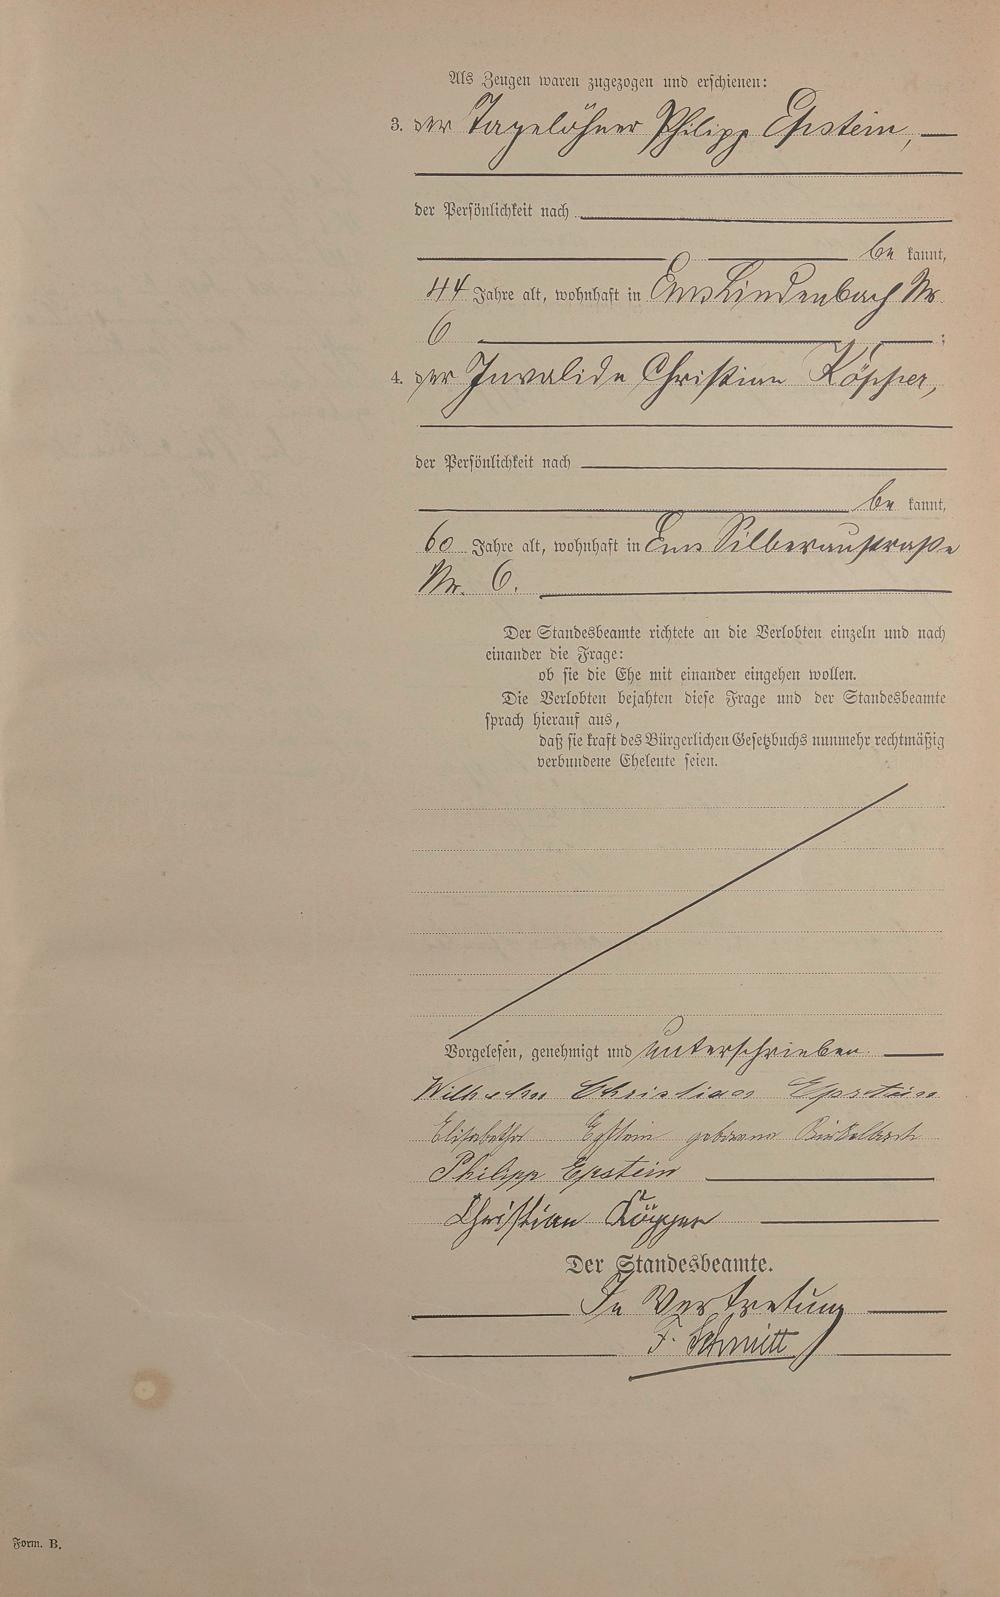 Als Zeugen waren zugezogen und erschienen:
3. der Tagelöhner Philipp Epstein,
der Persönlichkeit nach
be kannt,
44 Jahre alt, wohnhaft in Ems Lindenbach Nr
6 ;
4. der Invalide Christian Köpper,
der Persönlichkeit nach
be kannt,
60 Jahre alt, wohnhaft in Ems Silberaustraße
Nr. 6.
Der Standesbeamte richtete an die Verlobten einzeln und nach
einander die Frage:
ob sie die Ehe mit einander eingehen wollen.
Die Verlobten bejahten diese Frage und der Standesbeamte
sprach hierauf aus,
daß sie kraft des Bürgerlichen Gesetzbuchs nunmehr rechtmäßig
verbundene Eheleute seien.
Vorgelesen, genehmigt und unterschrieben
Wilhelm Christian Epstein
Epstein geborene
Philipp Epstein
Christian Köpper
Der Standesbeamte.
In Vertretung
F. Schmitt
Form. B.